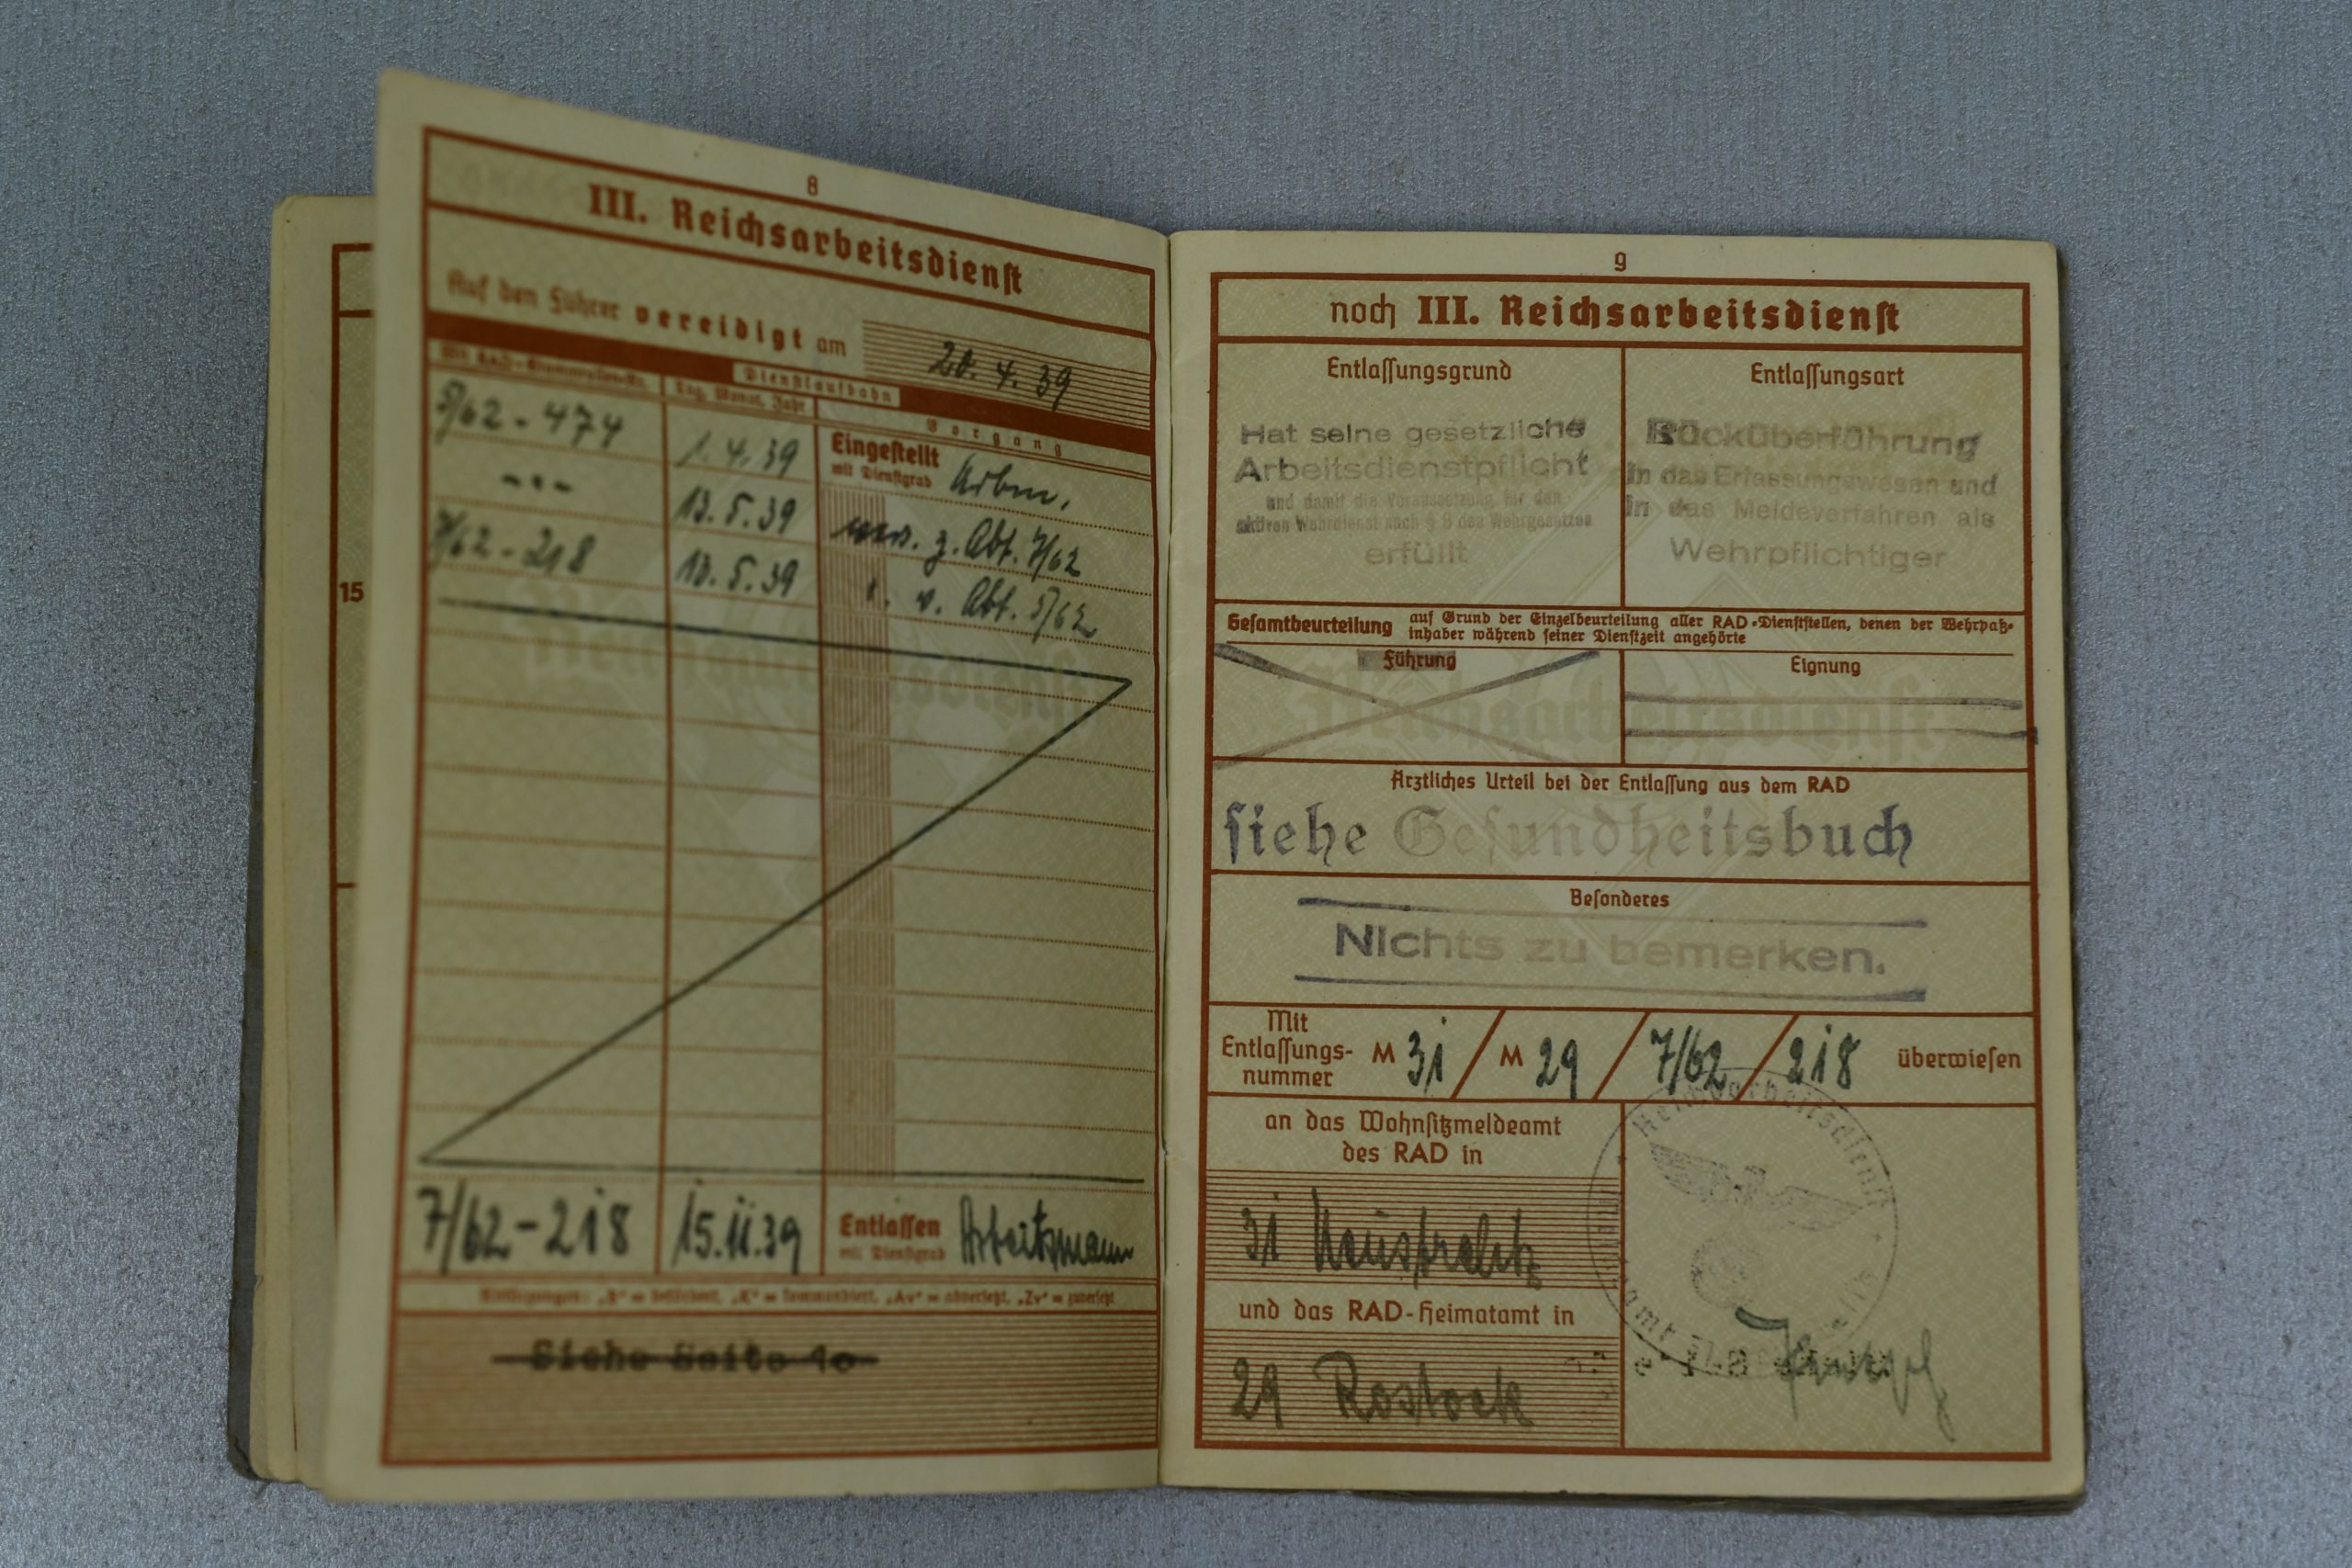 8
III. Reichsarbeitsdienst
Auf den Führer vereidigt am 20.4.39
Dienstlaufbahn
Tag, Monat, Jahr
Vorgang
5/62 - 474 1.4.39 Eingestellt mit Dienstgrad Arbm.
- " - 13.5.39 vers. z. Abt. 7/62
7/62 - 218 13.5.39 v. Abt. 5/62
7/62 - 218 15.11.39 Entlassen mit Dienstgrad Arbeitsmann
Siehe Seite 10
15
9
noch III. Reichsarbeitsdienst
Entlassungsgrund
Hat seine gesetzliche
Arbeitsdienstpflicht
und damit die Voraussetzung für den
aktiven Wehrdienst nach § 8 des Wehrgesetzes
erfüllt
Entlassungsart
Rücküberführung
in das Erfassungswesen und
in das Meldeverfahren als
Wehrpflichtiger
Gesamtbeurteilung auf Grund der Einzelbeurteilung aller RAD-Dienststellen, denen der Wehrpaß-
inhaber während seiner Dienstzeit angehörte
Führung
Eignung
Reichsarbeitsdienst
Ärztliches Urteil bei der Entlassung aus dem RAD
siehe Gesundheitsbuch
Besonderes
Nichts zu bemerken.
Mit
Entlassungs-
nummer
M 31 / M 29 / 7/62 / 218 überwiesen
an das Wohnsitzmeldeamt
des RAD in
31 Neustrelitz
und das RAD-Heimatamt in
29 Rostock
Reichsarbeitsdienst